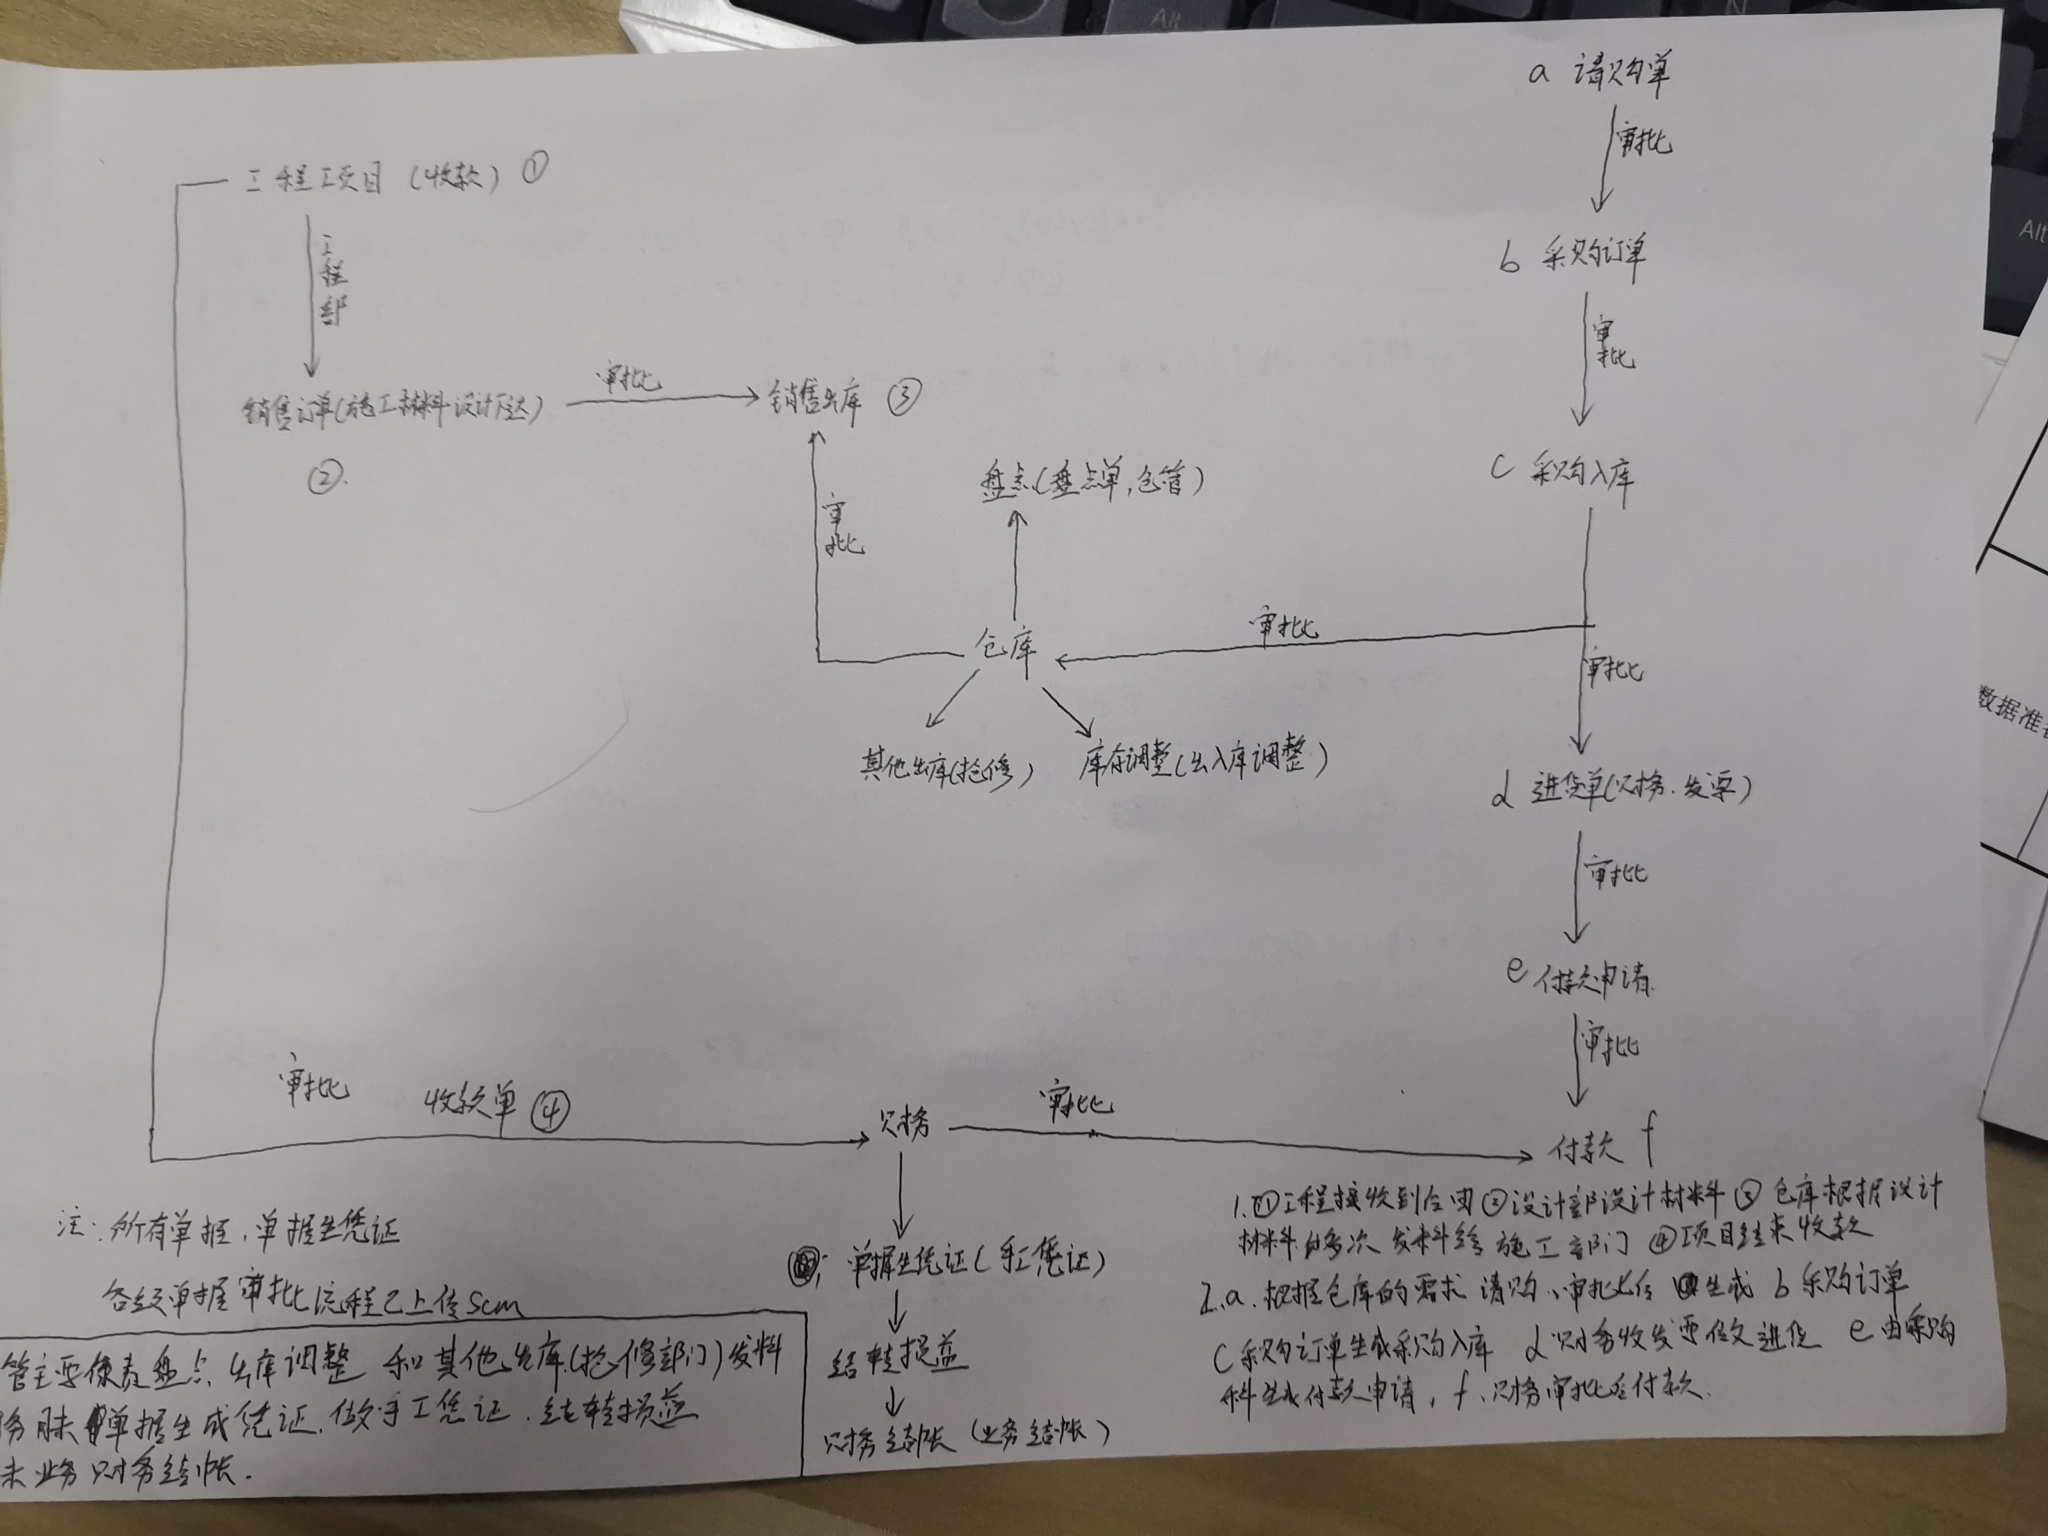 a 请购单
审批
b 采购订单
审批
c 采购入库
审批
审批
d 进货单(财务.发票)
审批
e 付款申请
审批
付款 f
工程工项目(收款) ①
工程部
销售订单(施工材料设计下达)
②
审批
销售出库 ③
审批
盘点(盘点单,仓管)
仓库
其他出库(抢修)
库存调整(出入库调整)
审批
收款单 ④
财务
审批
单据生凭证(手工凭证)
结转损益
财务结帐(业务结帐)
注:所有单据,单据生凭证
各级单据审批流程已上传scm
管主要 盘点 出库调整 和其他出库(抢修部门)发料
务月末 单据生成凭证.做手工凭证.结转损益
末业务财务结帐.
1.①工程接收到后由②设计部设计材料③仓库根据设计
材料 多次发料给施工部门④项目结束收款
2.a.根据仓库的需求请购、审批后 生成 b采购订单
c采购订单生成采购入库 d财务收发票做进货 e由采购
科生成付款申请, f.财务审批后付款.
Alt
Alt
N
数据准